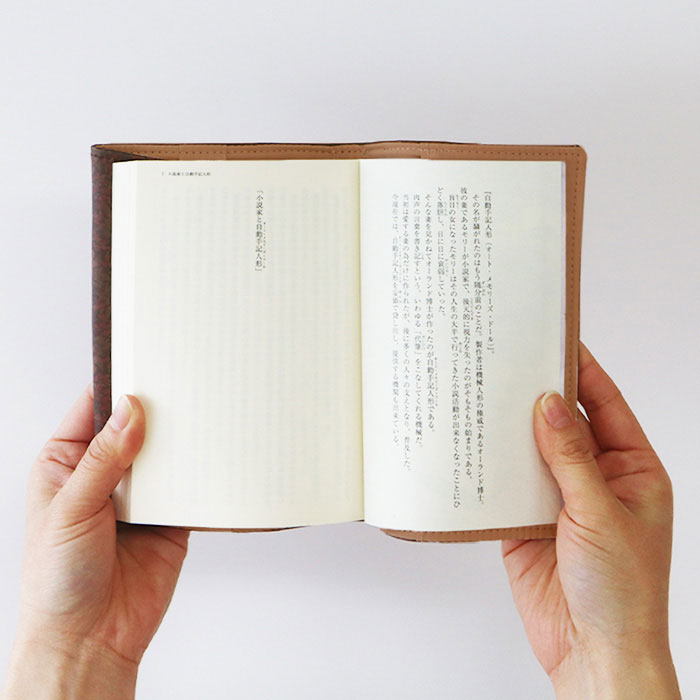 『自動手記人形（オート・メモリーズ・ドール）』。
その名が騒がれたのはもう随分前のことだ。製作者は機械人形の権威であるオーランド博士。
彼の妻であるモリーが小説家で、後天的に視力を失ったのがそもそもの始まりである。
盲目の女になったモリーはその人生の大半で行ってきた小説活動が出来なくなったことにひ
どく落胆し、日に日に衰弱していった。
そんな妻を見かねてオーランド博士が作ったのが自動手記人形である。
肉声の言葉を書き記すという、いわゆる「代筆」をこなしてくれる機械だ。
当初は愛する妻の為だけに作られたが、後に多くの人々の支えとなり、普及した。
今現在では、自動手記人形を安価で貸し出し、提供する機関も出来ている。
7 小説家と自動手記人形
『小説家と自動手記人形』